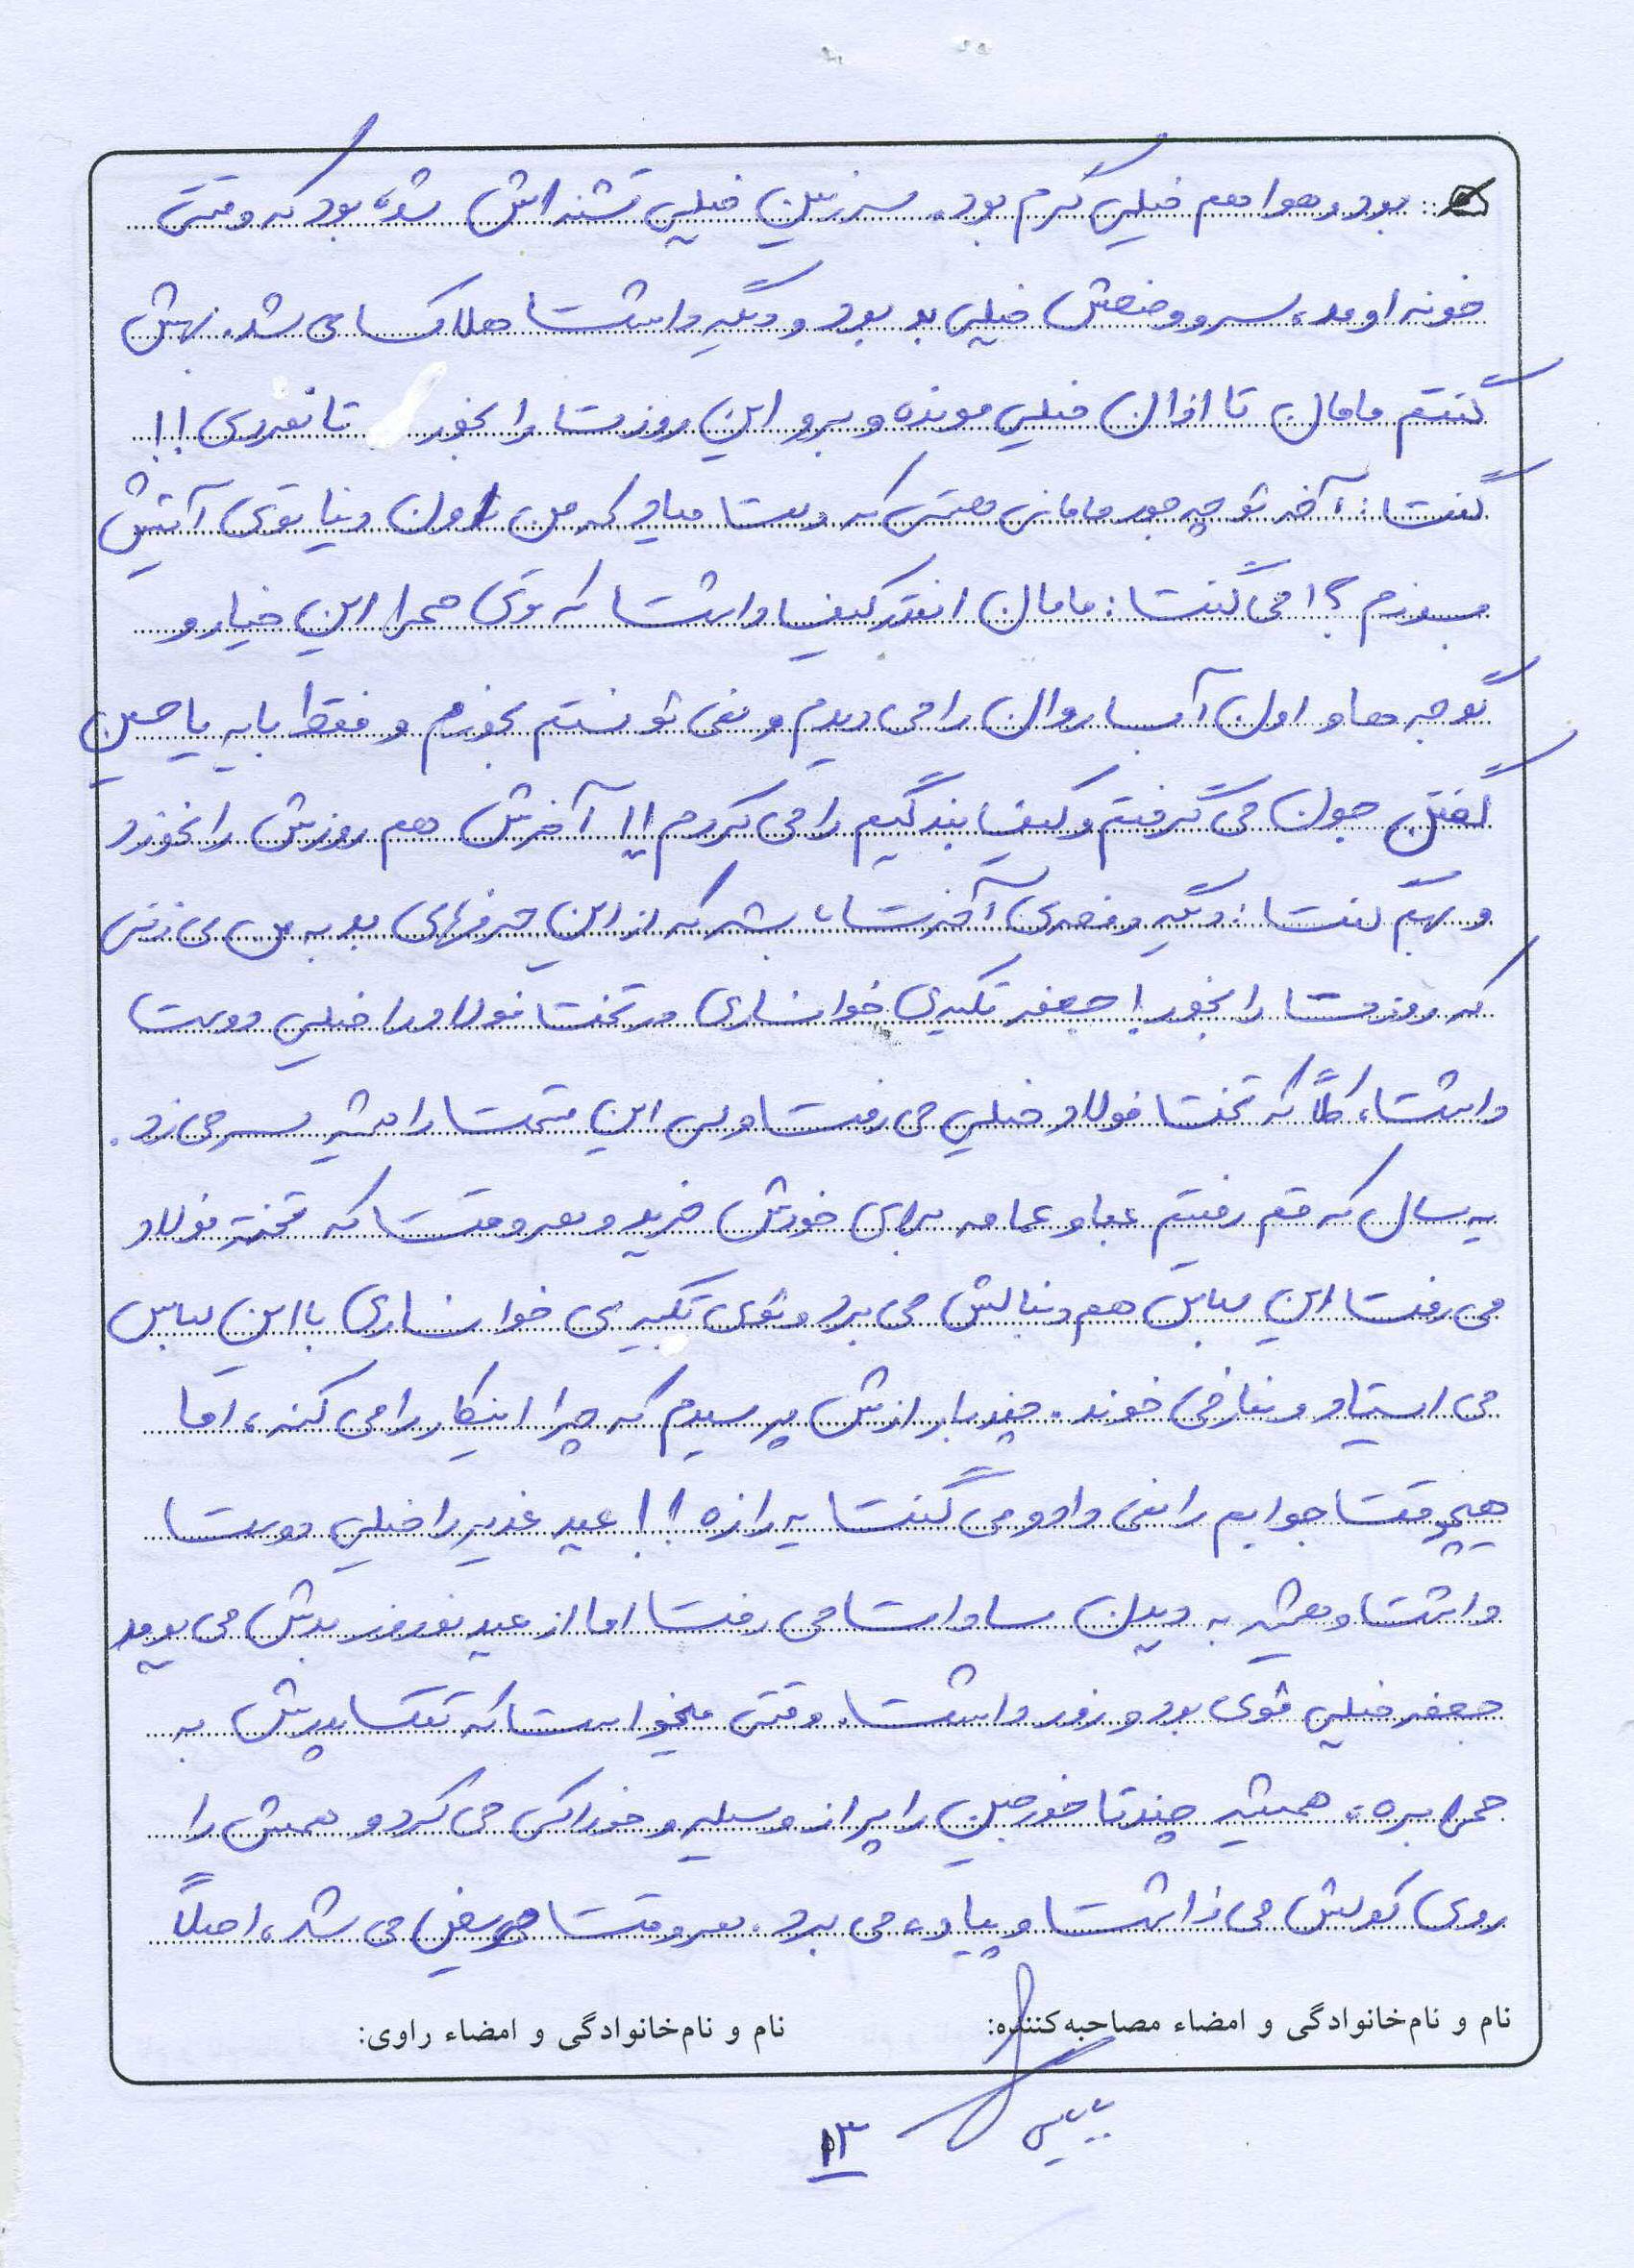 بود و هوا هم خیلی گرم بود. سر زمین خیلی تشنه اش شده بود که وقتی
خونه اومد، سر و وضعش خیلی بد بود و دیگه داشت هلاک می شد. بهش
گفتم مامان تا اذان خیلی مونده و برو این روزت را بخور تا نمردی!!
گفت: آخه تو چه جور مامانی هستی که دلت میاد که من اون دنیا توی آتیش
بسوزم؟! می گفت: مامان انقدر کیف داشت که توی صحرا این خیار و
گوجه ها و اون آب روان را می دیدم و نمی تونستم بخورم و فقط با یه یا حسین
گفتن جون می گرفتم و کیف بندگیم را می کردم!! آخرش هم روزش را نخورد
و بهم گفت: دیگه دفعه ی آخرت باشه که از این حرفهای بد به من می زنی
که روزت را بخور! جعفر تکیه ی خوانساری در تخت فولاد را خیلی دوست
داشت، کلاً که تخت فولاد خیلی می رفت ولی این قسمت را همیشه سر می زد.
یه سال که قم رفتیم عبا و عمامه برای خودش خرید و هر وقت که تخت فولاد
می رفت این لباس هم دنبالش می برد و توی تکیه ی خوانساری با این لباس
می ایستاد و نماز می خوند. چند بار ازش پرسیدم که چرا اینکار را می کنه، اما
هیچوقت جوابم را نمی داد و می گفت یه رازه!! عید غدیر را خیلی دوست
داشت و همیشه به دیدن سادات می رفت اما از عید نوروز بدش می یومد
جعفر خیلی قوی بود و زور داشت. وقتی میخواست که کمک پدرش به
صحرا بره، همیشه چندتا خورجین را پر از وسیله و خوراکی می کرد و همش را
روی کولش می ذاشت و پیاده می برد. هر وقت مریض می شد، اصلاً
نام و نام‌خانوادگی و امضاء مصاحبه‌کننده:
نام و نام‌خانوادگی و امضاء راوی:
۱۳